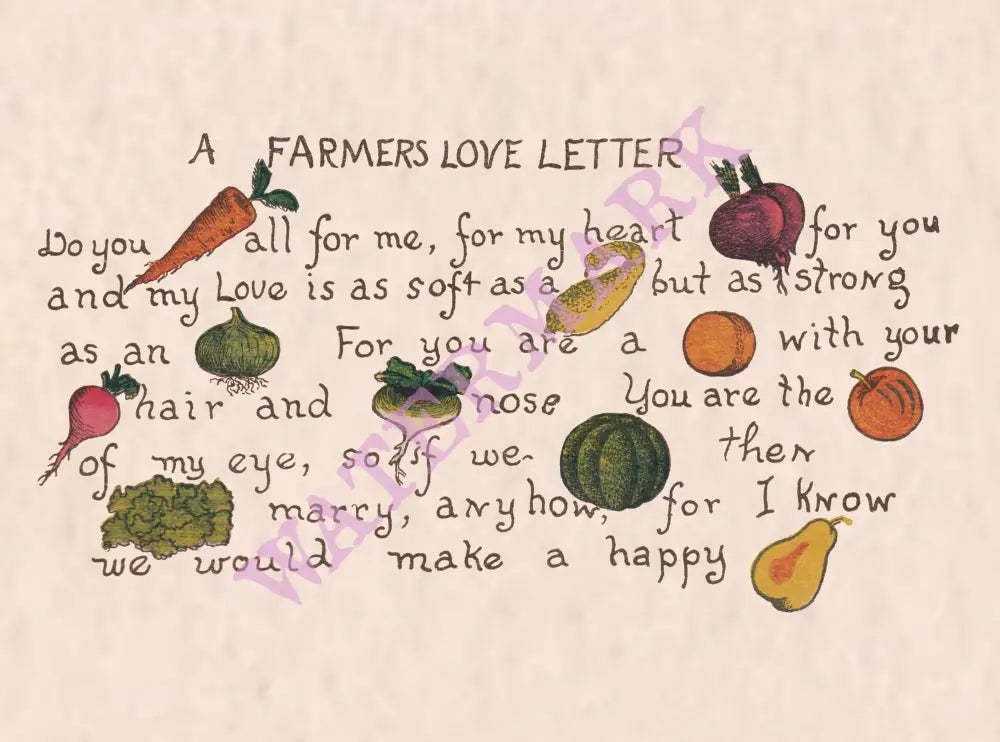 A FARMERS LOVE LETTER
Do you all for me, for my heart for you
and my Love is as soft as a but as strong
as an For you are a with your
hair and nose You are the
of my eye, so if we then
marry, anyhow, for I know
we would make a happy
WATERMARK